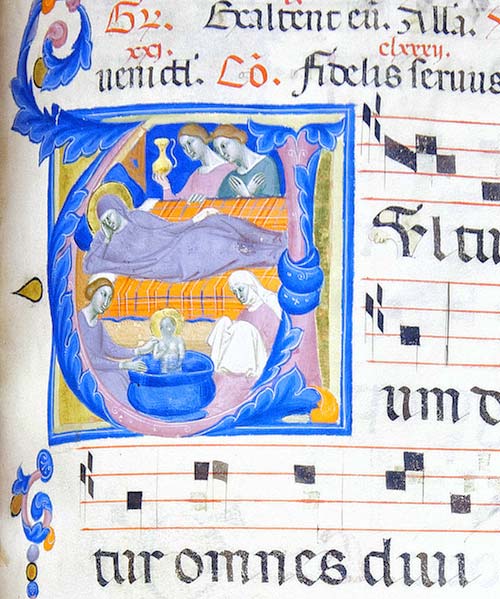 Gr. Exaltent eū. Alla.
xxj. clxxxxij.
Cō. Fidelis seruus
Vltu
um d
tur omnes diui